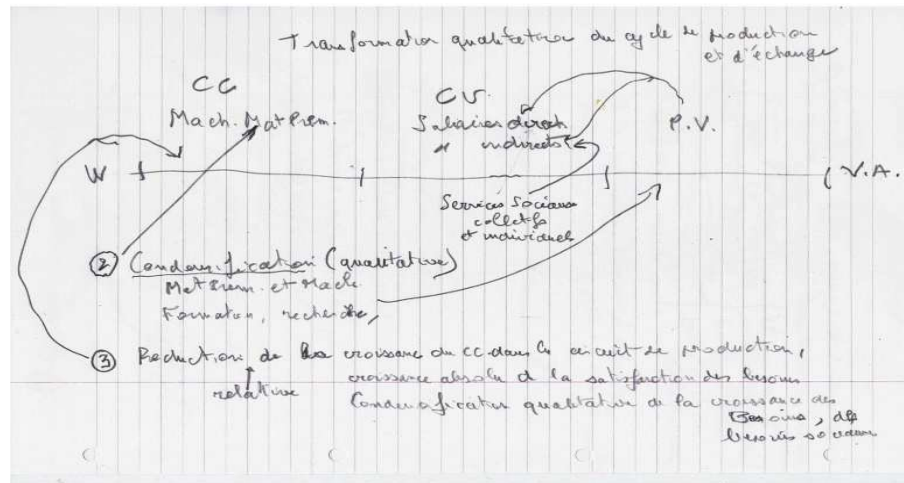 Transformation qualitative du cycle de production
et d'échange
CC
CV.
Mach. Mat Prem.
Salaires directs
" indirects
P.V.
W
V.A.
Services sociaux
collectifs
et individuels
② Condensification (qualitative)
Mat Prem. et Mach.
Formation, recherche,
③ Reduction de la croissance du CC dans le circuit de production,
relative
croissance absolue de la satisfaction des besoins
Condensification qualitative de la croissance des
Besoins, des
besoins sociaux